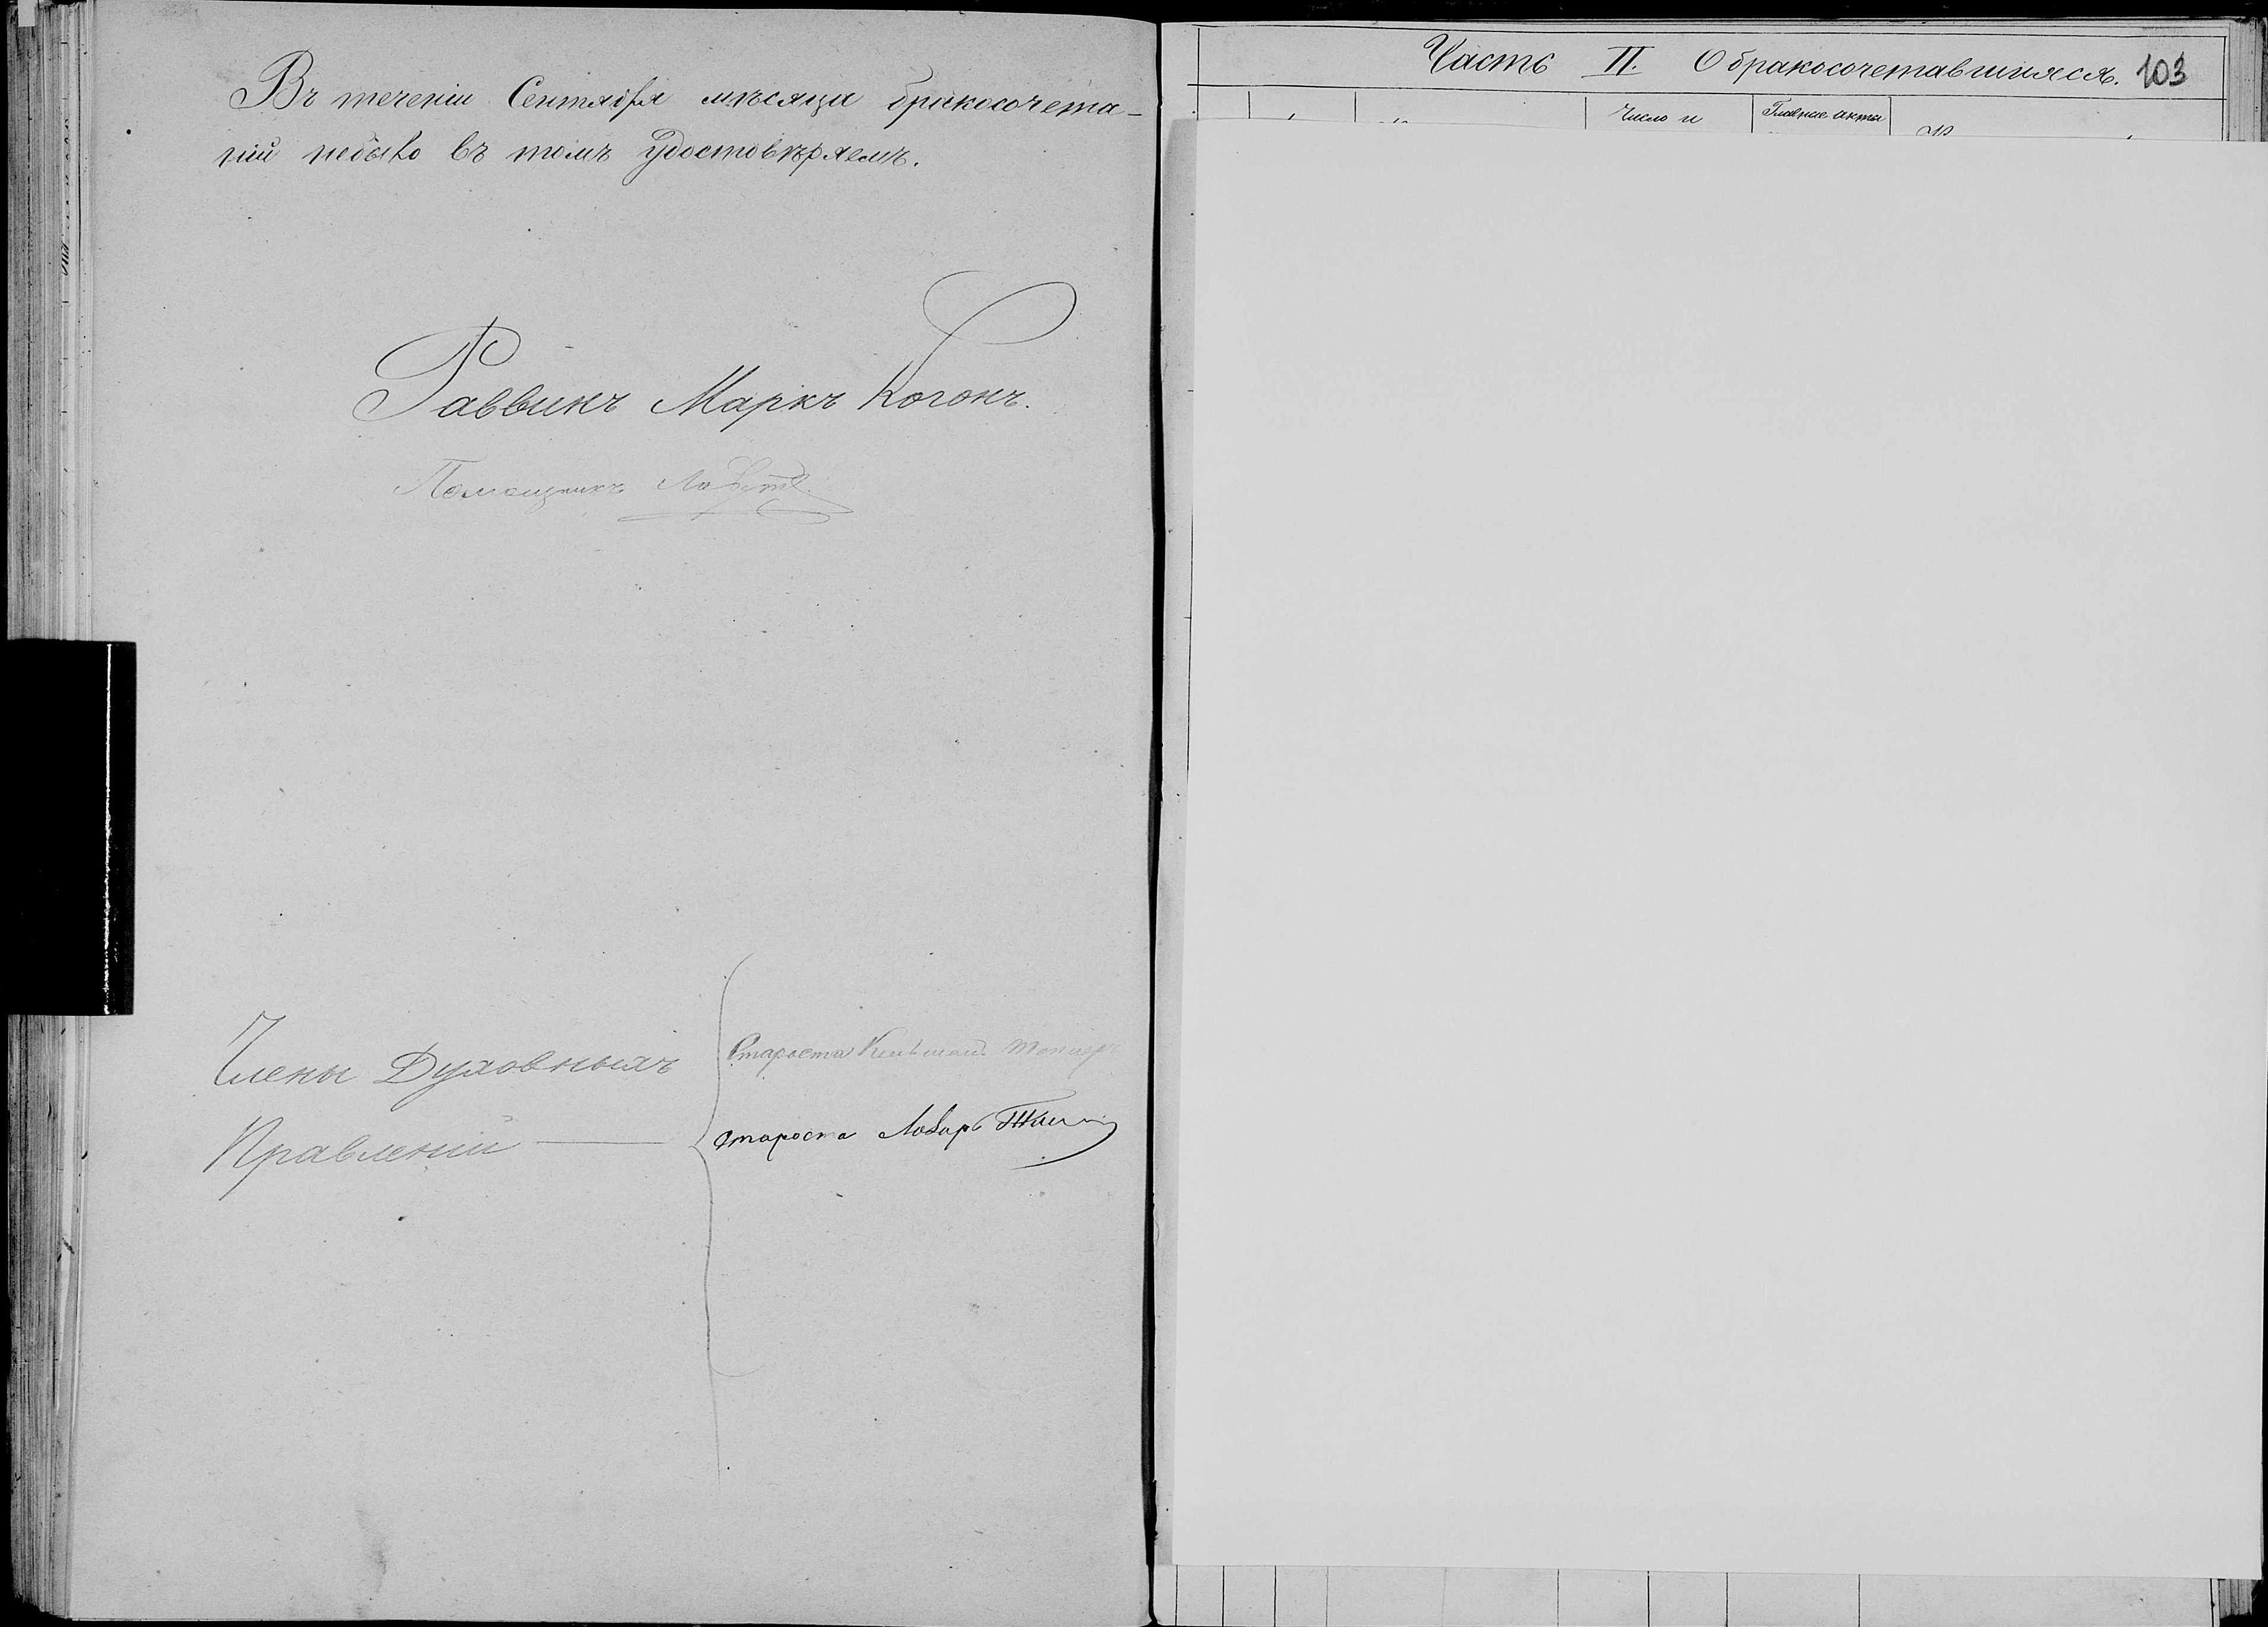 Въ теченіи Сентября мѣсяца бракосочета-
ній небыло въ томъ удостовѣряемъ.
Раввинъ Маркъ Когонъ.
Помощникъ
Члены Духовныхъ
Правленій
Староста
Староста Лазарь
Часть II. О бракосочетавшихся. 103
Число и
Главные акты